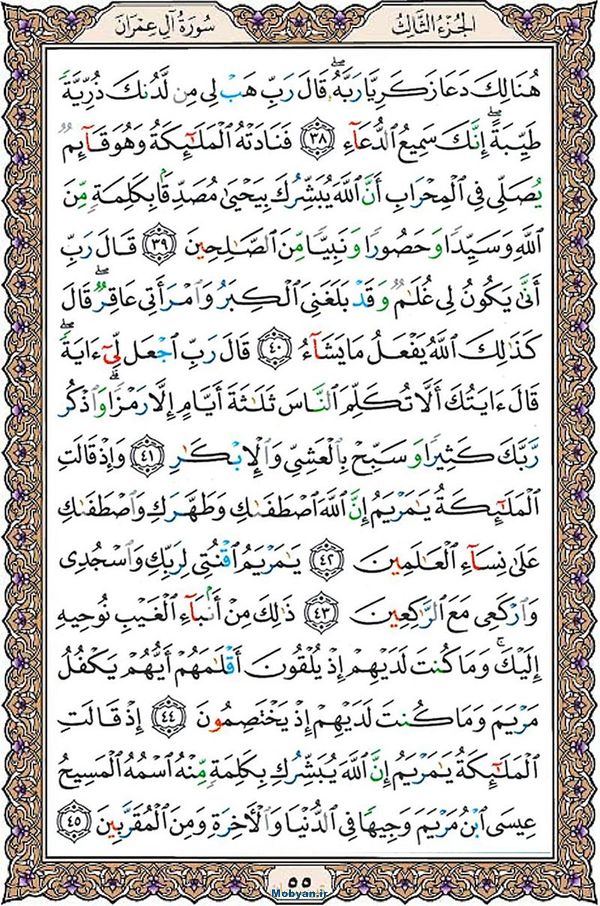 الجُزءُ الثَّالِثُ
سُورَةُ آلِ عِمْرَانَ
هُنَالِكَ دَعَا زَكَرِيَّا رَبَّهُۥۖ قَالَ رَبِّ هَبۡ لِي مِن لَّدُنكَ ذُرِّيَّةٗ
طَيِّبَةًۖ إِنَّكَ سَمِيعُ ٱلدُّعَآءِ ٣٨ فَنَادَتۡهُ ٱلۡمَلَٰٓئِكَةُ وَهُوَ قَآئِمٞ
يُصَلِّي فِي ٱلۡمِحۡرَابِ أَنَّ ٱللَّهَ يُبَشِّرُكَ بِيَحۡيَىٰ مُصَدِّقَۢا بِكَلِمَةٖ مِّنَ
ٱللَّهِ وَسَيِّدٗا وَحَصُورٗا وَنَبِيّٗا مِّنَ ٱلصَّٰلِحِينَ ٣٩ قَالَ رَبِّ
أَنَّىٰ يَكُونُ لِي غُلَٰمٞ وَقَدۡ بَلَغَنِيَ ٱلۡكِبَرُ وَٱمۡرَأَتِي عَاقِرٞۖ قَالَ
كَذَٰلِكَ ٱللَّهُ يَفۡعَلُ مَا يَشَآءُ ٤٠ قَالَ رَبِّ ٱجۡعَل لِّيٓ ءَايَةٗۖ
قَالَ ءَايَتُكَ أَلَّا تُكَلِّمَ ٱلنَّاسَ ثَلَٰثَةَ أَيَّامٍ إِلَّا رَمۡزٗاۗ وَٱذۡكُر
رَّبَّكَ كَثِيرٗا وَسَبِّحۡ بِٱلۡعَشِيِّ وَٱلۡإِبۡكَٰرِ ٤١ وَإِذۡ قَالَتِ
ٱلۡمَلَٰٓئِكَةُ يَٰمَرۡيَمُ إِنَّ ٱللَّهَ ٱصۡطَفَىٰكِ وَطَهَّرَكِ وَٱصۡطَفَىٰكِ
عَلَىٰ نِسَآءِ ٱلۡعَٰلَمِينَ ٤٢ يَٰمَرۡيَمُ ٱقۡنُتِي لِرَبِّكِ وَٱسۡجُدِي
وَٱرۡكَعِي مَعَ ٱلرَّٰكِعِينَ ٤٣ ذَٰلِكَ مِنۡ أَنۢبَآءِ ٱلۡغَيۡبِ نُوحِيهِ
إِلَيۡكَۚ وَمَا كُنتَ لَدَيۡهِمۡ إِذۡ يُلۡقُونَ أَقۡلَٰمَهُمۡ أَيُّهُمۡ يَكۡفُلُ
مَرۡيَمَ وَمَا كُنتَ لَدَيۡهِمۡ إِذۡ يَخۡتَصِمُونَ ٤٤ إِذۡ قَالَتِ
ٱلۡمَلَٰٓئِكَةُ يَٰمَرۡيَمُ إِنَّ ٱللَّهَ يُبَشِّرُكِ بِكَلِمَةٖ مِّنۡهُ ٱسۡمُهُ ٱلۡمَسِيحُ
عِيسَى ٱبۡنُ مَرۡيَمَ وَجِيهٗا فِي ٱلدُّنۡيَا وَٱلۡأٓخِرَةِ وَمِنَ ٱلۡمُقَرَّبِينَ ٤٥
٥٥
Mobyan.ir